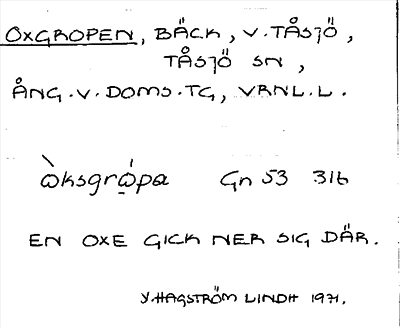 OXGROPEN, BÄCK, V. TÅSJÖ,
TÅSJÖ SN,
ÅNG. V. DOMS. TG, VRNL. L.
ò̀ksgró̱pa Gn 53 31b
EN OXE GICK NER SIG DÄR.
Y. HAGSTRÖM LINDH 1971.